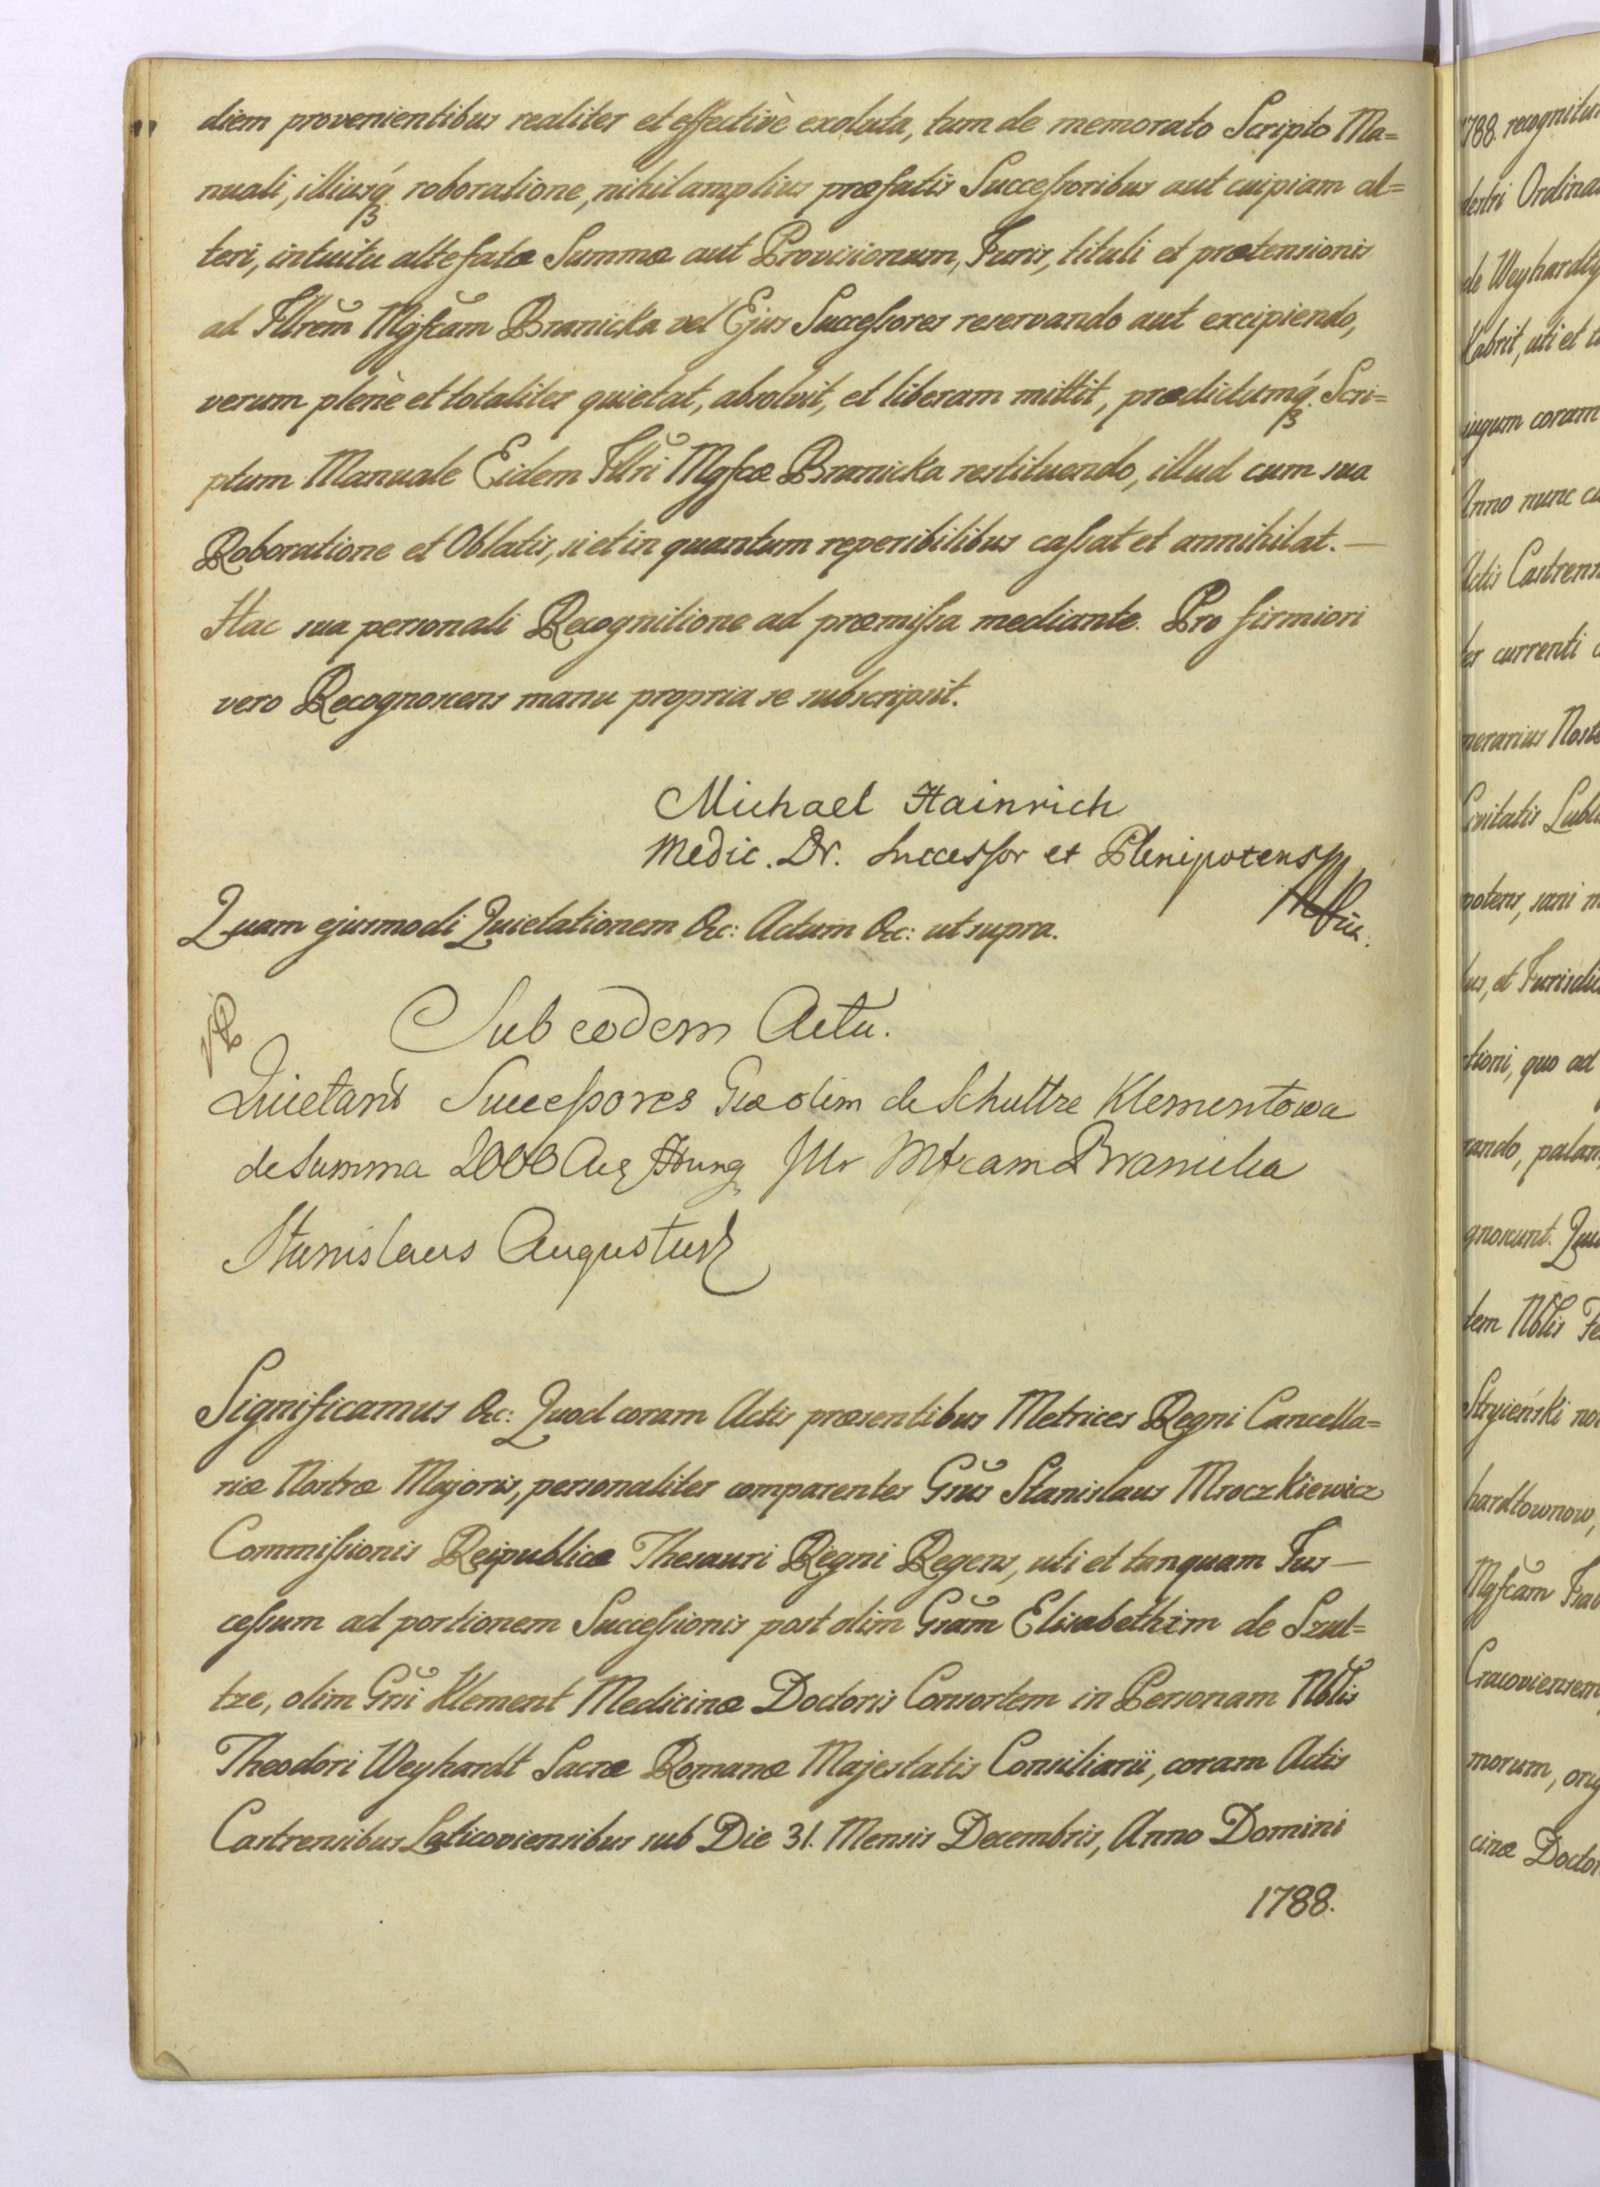 diem provenientibus realiter et effectivè exoluta, tum de memorato Scripto Ma=
nuali, illiusq́ roboratione, nihil amplius præfatis Successoribus aut cuipiam al=
teri, intuitu altefatæ Summæ aut Provisionum, Juris, tituli et prætensionis
ad Illrem Mgfcam Branicka vel Ejus Successores reservando aut excipiendo,
verum plenè et totaliter quietat, absolvit, et liberam mittit, prædictumq́ Scri=
ptum Manuale Eidem Illri Mgfcæ Branicka restituendo, illud cum sua
Roboratione et Oblatis, si et in quantum reperibilibus cassat et annihilat. —
Hac sua personali Recognitione ad præmissa mediante. Pro firmiori
vero Recognoscens manu propria se subscripsit.
Michael Hainrich
Medic. Dr. Successor et Plenipotens
Quam ejusmodi Quietationem &c: Actum &c: ut supra.
Sub eodem Actu.
Quietant Successores Gæ olim de Schultze Klementowa
de Summa 2000 Aur Hung Illr Mfcam Branicka
Stanislaus Augustus
Significamus &c: Quod coram Actis præsentibus Metrices Regni Cancella=
riæ Nostræ Majoris, personaliter comparentes Gsus Stanislaus Mroczkiewicz
Commissionis Reipublicæ Thesauri Regni Regens, uti et tanquam Jus —
cessum ad portionem Successionis post olim Gsam Elisabetham de Szul=
tze, olim Gsi Klement Medicinæ Doctoris Consortem in Personam Nblis
Theodori Weyhardt Sacræ Romanæ Majestatis Consiliarii, coram Actis
Castrensibus Laticoviensibus sub Die 31. Mensis Decembris, Anno Domini
1788.
1788. recognitum
de Weyhardt
coram
Anno nunc
Actis
currenti
Nost
quo ad
Stryieński
Mgfcam
Cracoviensem
morum,